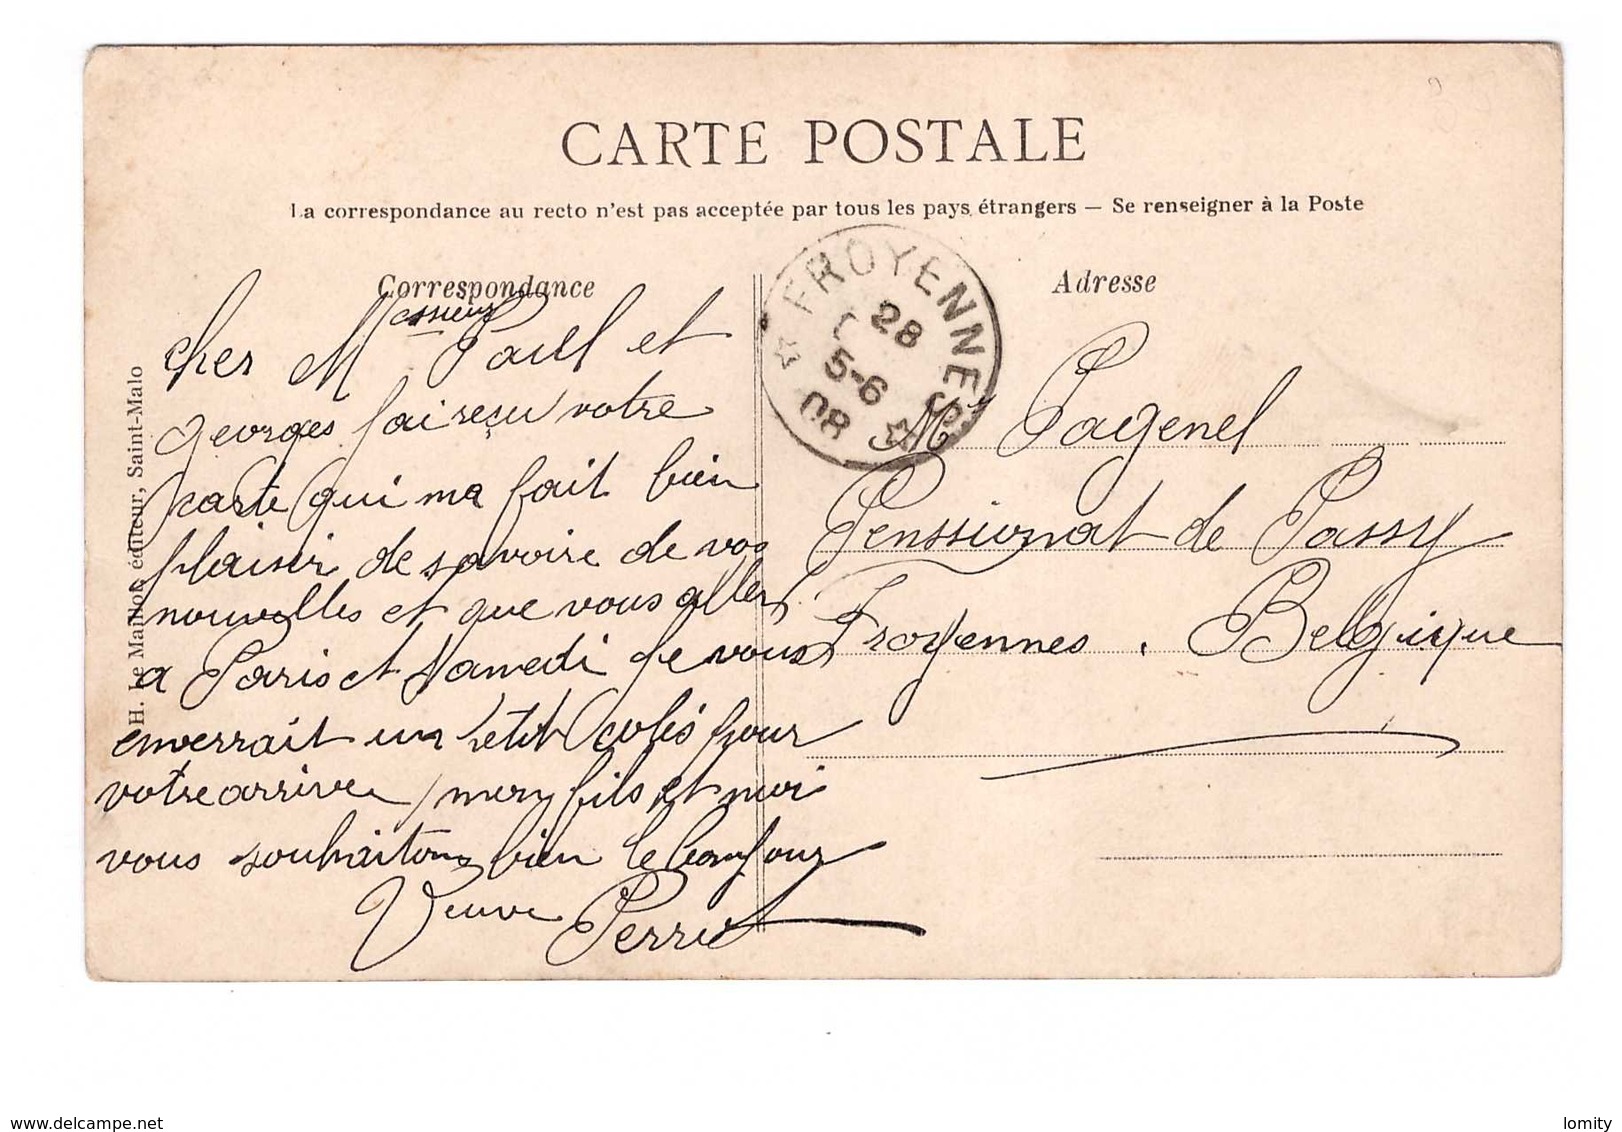 CARTE POSTALE
La correspondance au recto n'est pas acceptée par tous les pays étrangers — Se renseigner à la Poste
Correspondance
Adresse
H. Le Maillot, éditeur, Saint-Malo
FROYENNES
28
5-6
08
cher Messieurs Paul et
georges j ai reçu votre
carte qui ma fait bien
plaisir de savoire de vos
nouvelles et que vous aller
a Paris et Samedi je vous
enverrait un petit colis pour
votre arriver mon fils et moi
vous souhaitons bien le bonjour
Veuve Perrot
Mr Pagenel
Penssionat de Passy
Froyennes . Belgique
www.delcampe.net
lomity